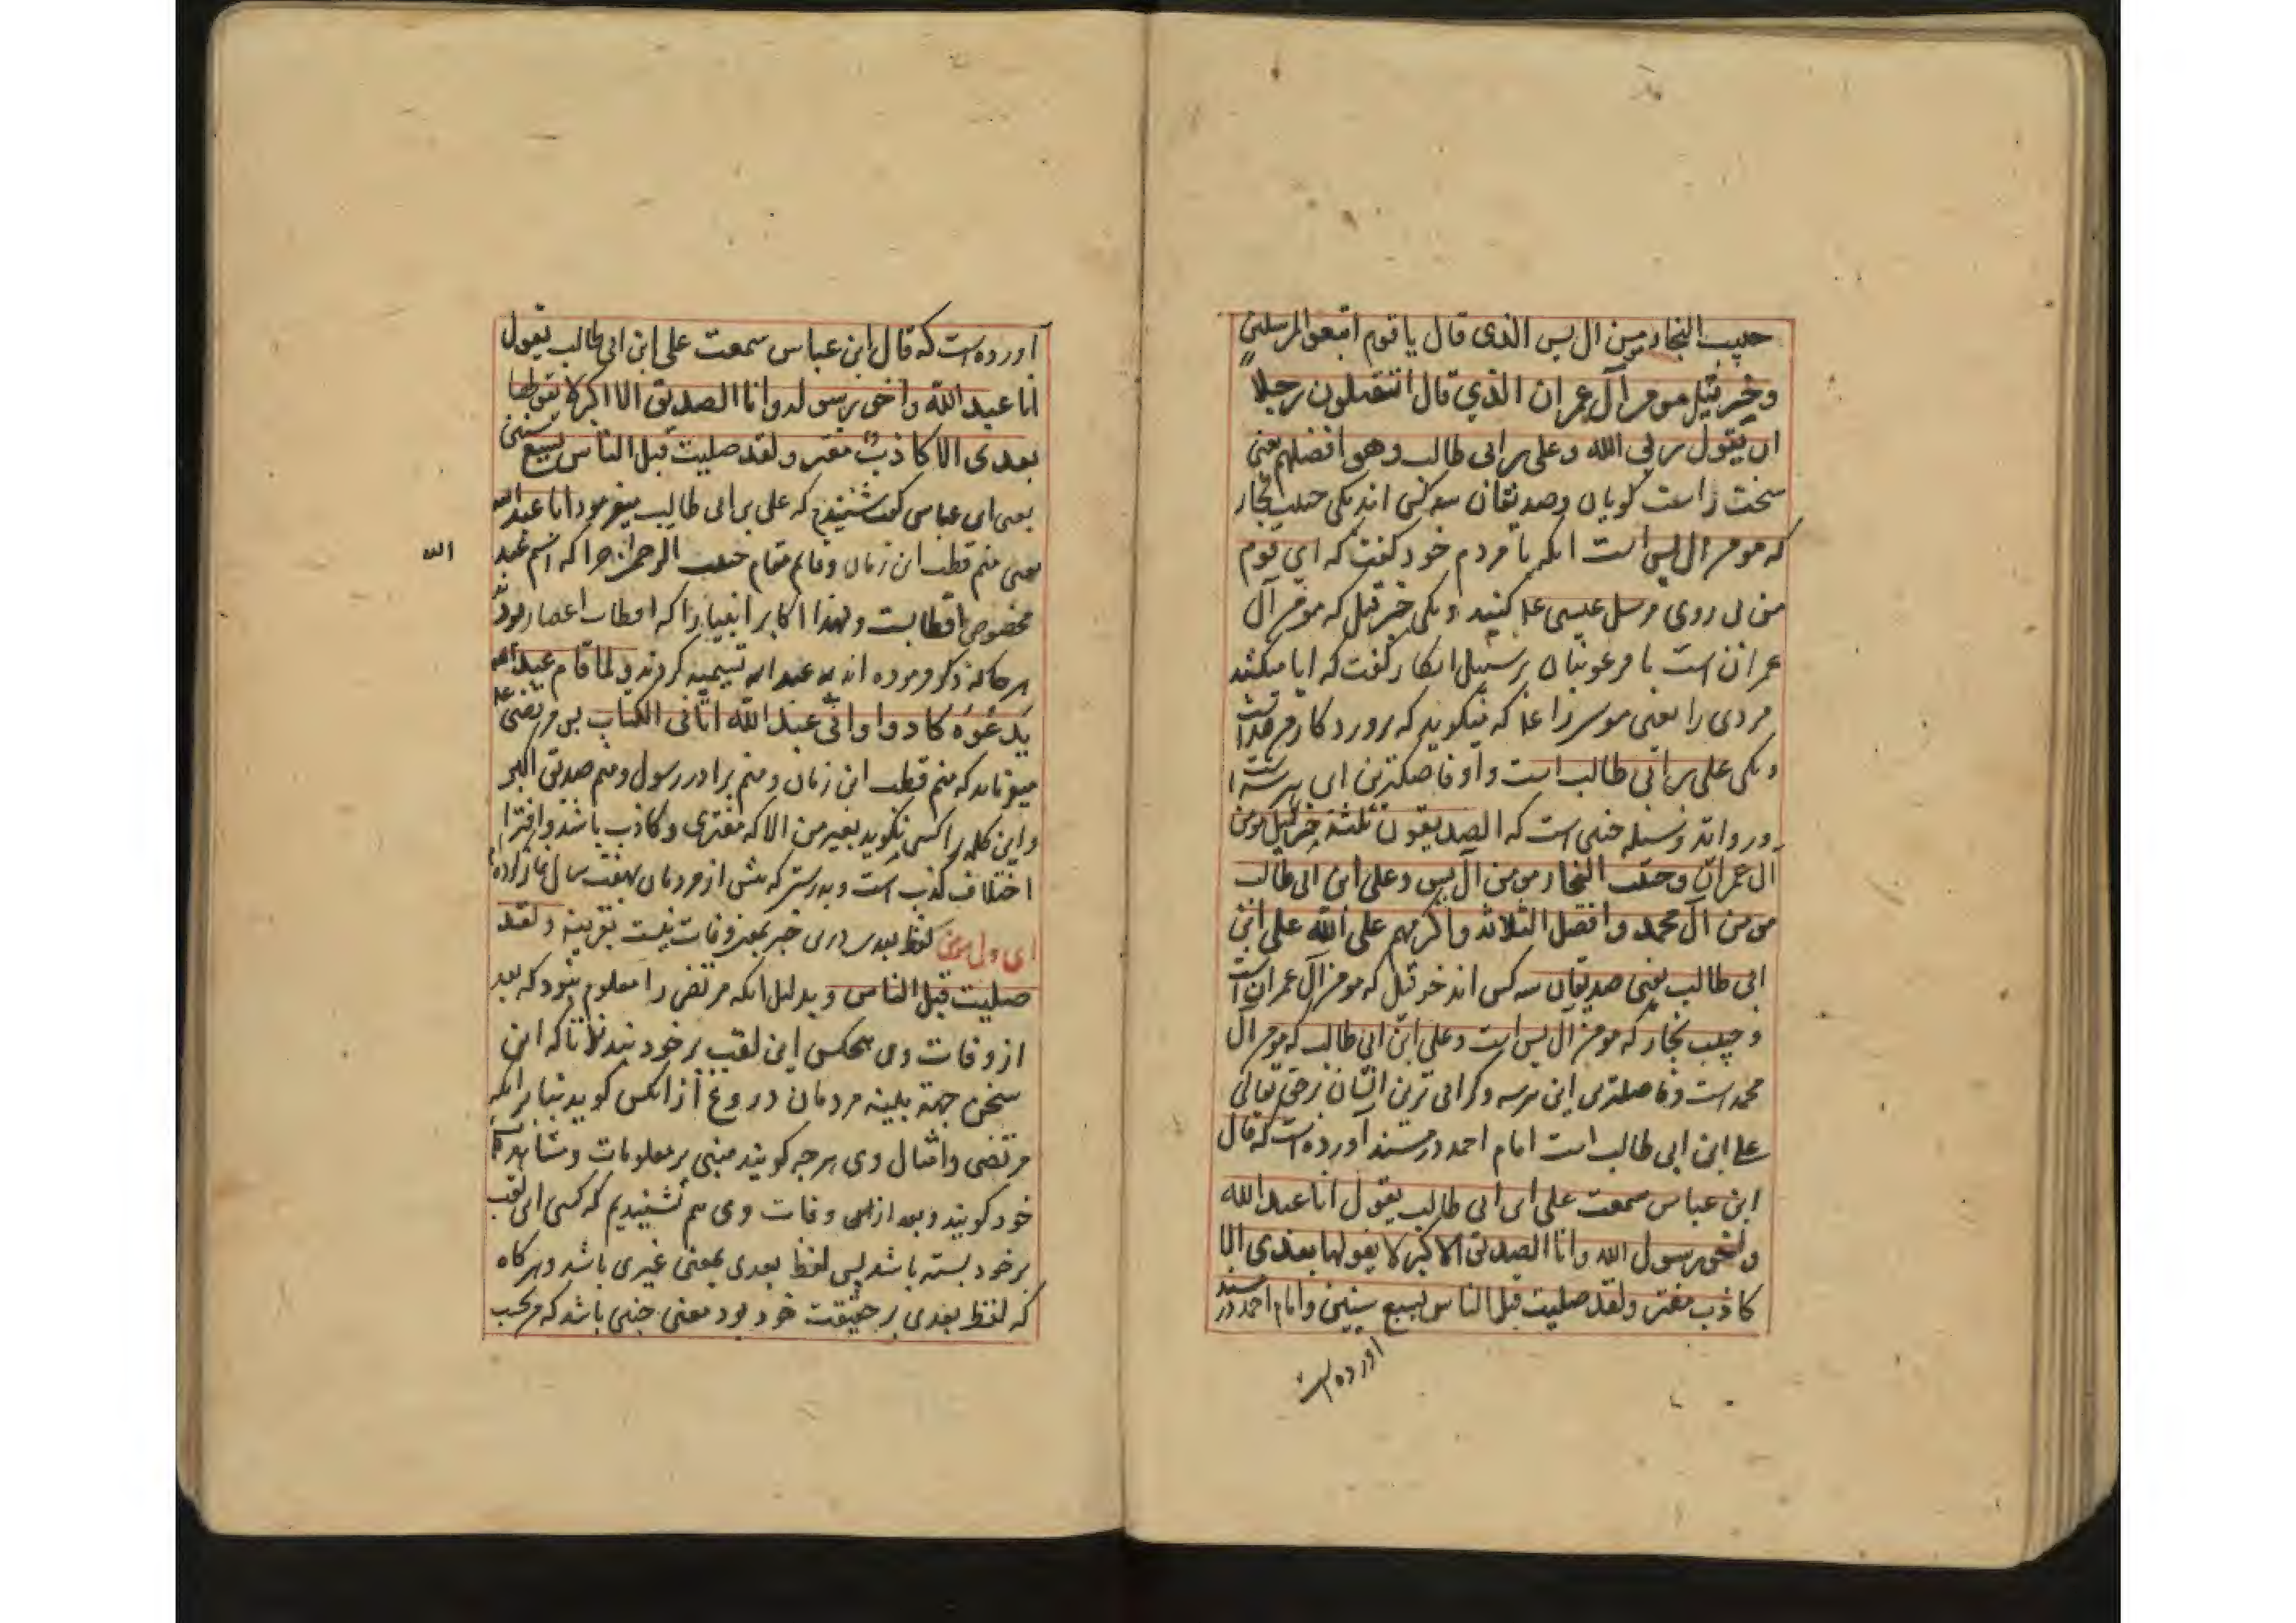 حبیب النجار مومن ال یس الذی قال یا قوم اتبعوا المرسلین
و خرتیل مومن آل عمران الذي قال اتقتلون رجلا
ان یقول ربی الله و علی بن ابی طالب وهو افضلهم یعنی
سخت راست کویان و صدیقان سه کس اند یکی حبیب نجار
که مومن ال یس است انکه با مردم خود کفت که ای قوم
من پی روی مرسل عیسی ع کنید و یکی خرتیل که مومن آل
عمران است با فرعونیان بر سبیل انکار کفت که ایا میکشید
مردی را یعنی موسی را ع که میکوید که پروردکار من خداست
و یکی علی بن ابی طالب است و او فاضلترین این هر سه است
و روایة وسیله چنین است که الصدیقون ثلثة خرتیل مومن
ال عمران و حبیب النجار مومن آل یس و علی ابن ابی طالب
مومن آل محمد و افضل الثلاثة و اکرمهم علی الله علی ابن
ابی طالب یعنی صدیقان سه کس اند خرتیل که مومن آل عمران است
و حبیب نجار که مومن ال یس است و علی ابن ابی طالب که مومن ال
محمد است و فاضلترین این هر سه و کرامی ترین ایشان نزد حق تعالی
علی ابن ابی طالب است امام احمد در مسند آورده است که قال
ابن عباس سمعت علی ابن ابی طالب یقول انا عبد الله
و اخی رسول الله وانا الصدیق الاکبر لا یقولها بعدی الا
کاذب مفتر ولقد صلیت قبل الناس بسبع سنین و امام احمد در مسند
اورده است
آورده است که قال ابن عباس سمعت علی ابن ابی طالب یقول
انا عبد الله واخی رسوله وانا الصدیق الاکبر لا یقولها
بعدی الا کاذب مفتر ولقد صلیت قبل الناس بسبع سنین
یعنی ابن عباس کفت شنیدم که علی بن ابی طالب میفرمود انا عبد الله
یعنی منم قطب این زمان و قایم مقام حبیب الرحمن چرا که اسم عبد
الله
مخصوص اقطابست و لهذا اکابر انبیا را که اقطاب اعصار بودند
هر جا که ذکر فرموده اند به عبد الله تسمیه کردند و لما قام عبد الله
یدعوه کادوا وانی عبد الله اتانی الکتاب پس مرتضی ع
میفرماید که منم قطب این زمان و منم برادر رسول و منم صدیق اکبر
و این کلمه را کسی نکوید بغیر من الا که مفتری و کاذب باشد و افترا
اختلاف کذب است و بدرستی که پیش از مردمان بهفت سال نماز کرده ام
لفظ بعدی درین خبر بمعنی وفات نیست بقرینه و لقد
صلیت قبل الناس و بدلیل انکه مرتضی را معلوم نبود که بعد
از وفات وی هیچکس این لقب بر خود بندد تا که این
سخن جهة مردمان دروغ از انکس کوید بنابر انکه
مرتضی و امثال وی هر چه کویند مبنی بر معلومات و مشاهدات
خود کویند و بعد از وفات وی هم نشنیدیم که کسی این لقب
بر خود بسته باشد پس لفظ بعدی بمعنی غیری باشد و هر کاه
که لفظ بعدی بر حقیقت خود بود معنی چنین باشد که